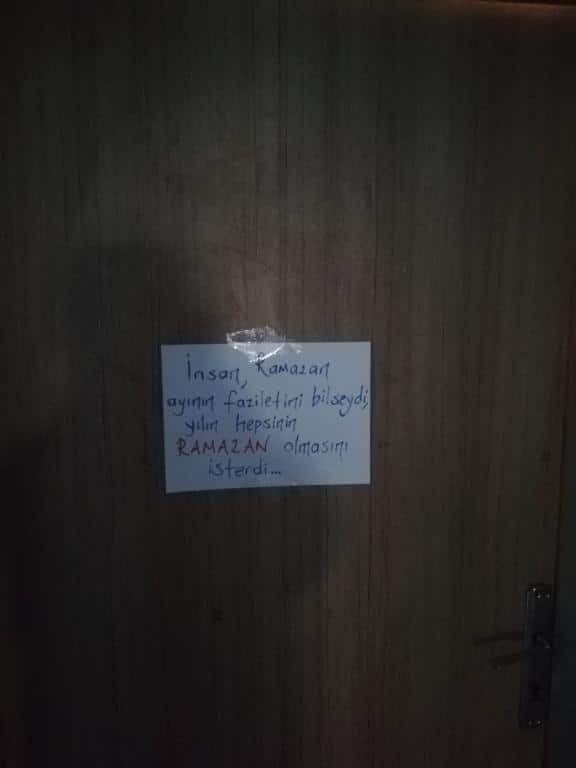 İnsan, Ramazan
ayının faziletini bilseydi,
yılın hepsinin
RAMAZAN olmasını
isterdi...